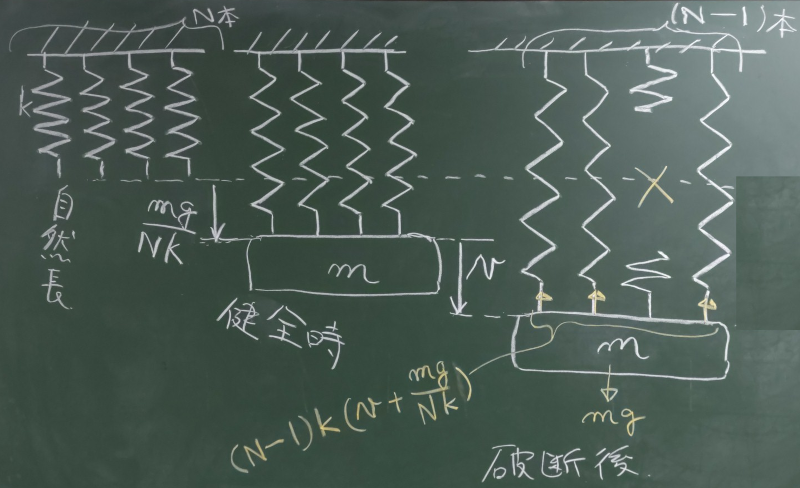 N本
k
自然長
mg/Nk
m
健全時
v
(N-1)本
m
(N-1)k(v+mg/Nk)
mg
破断後.